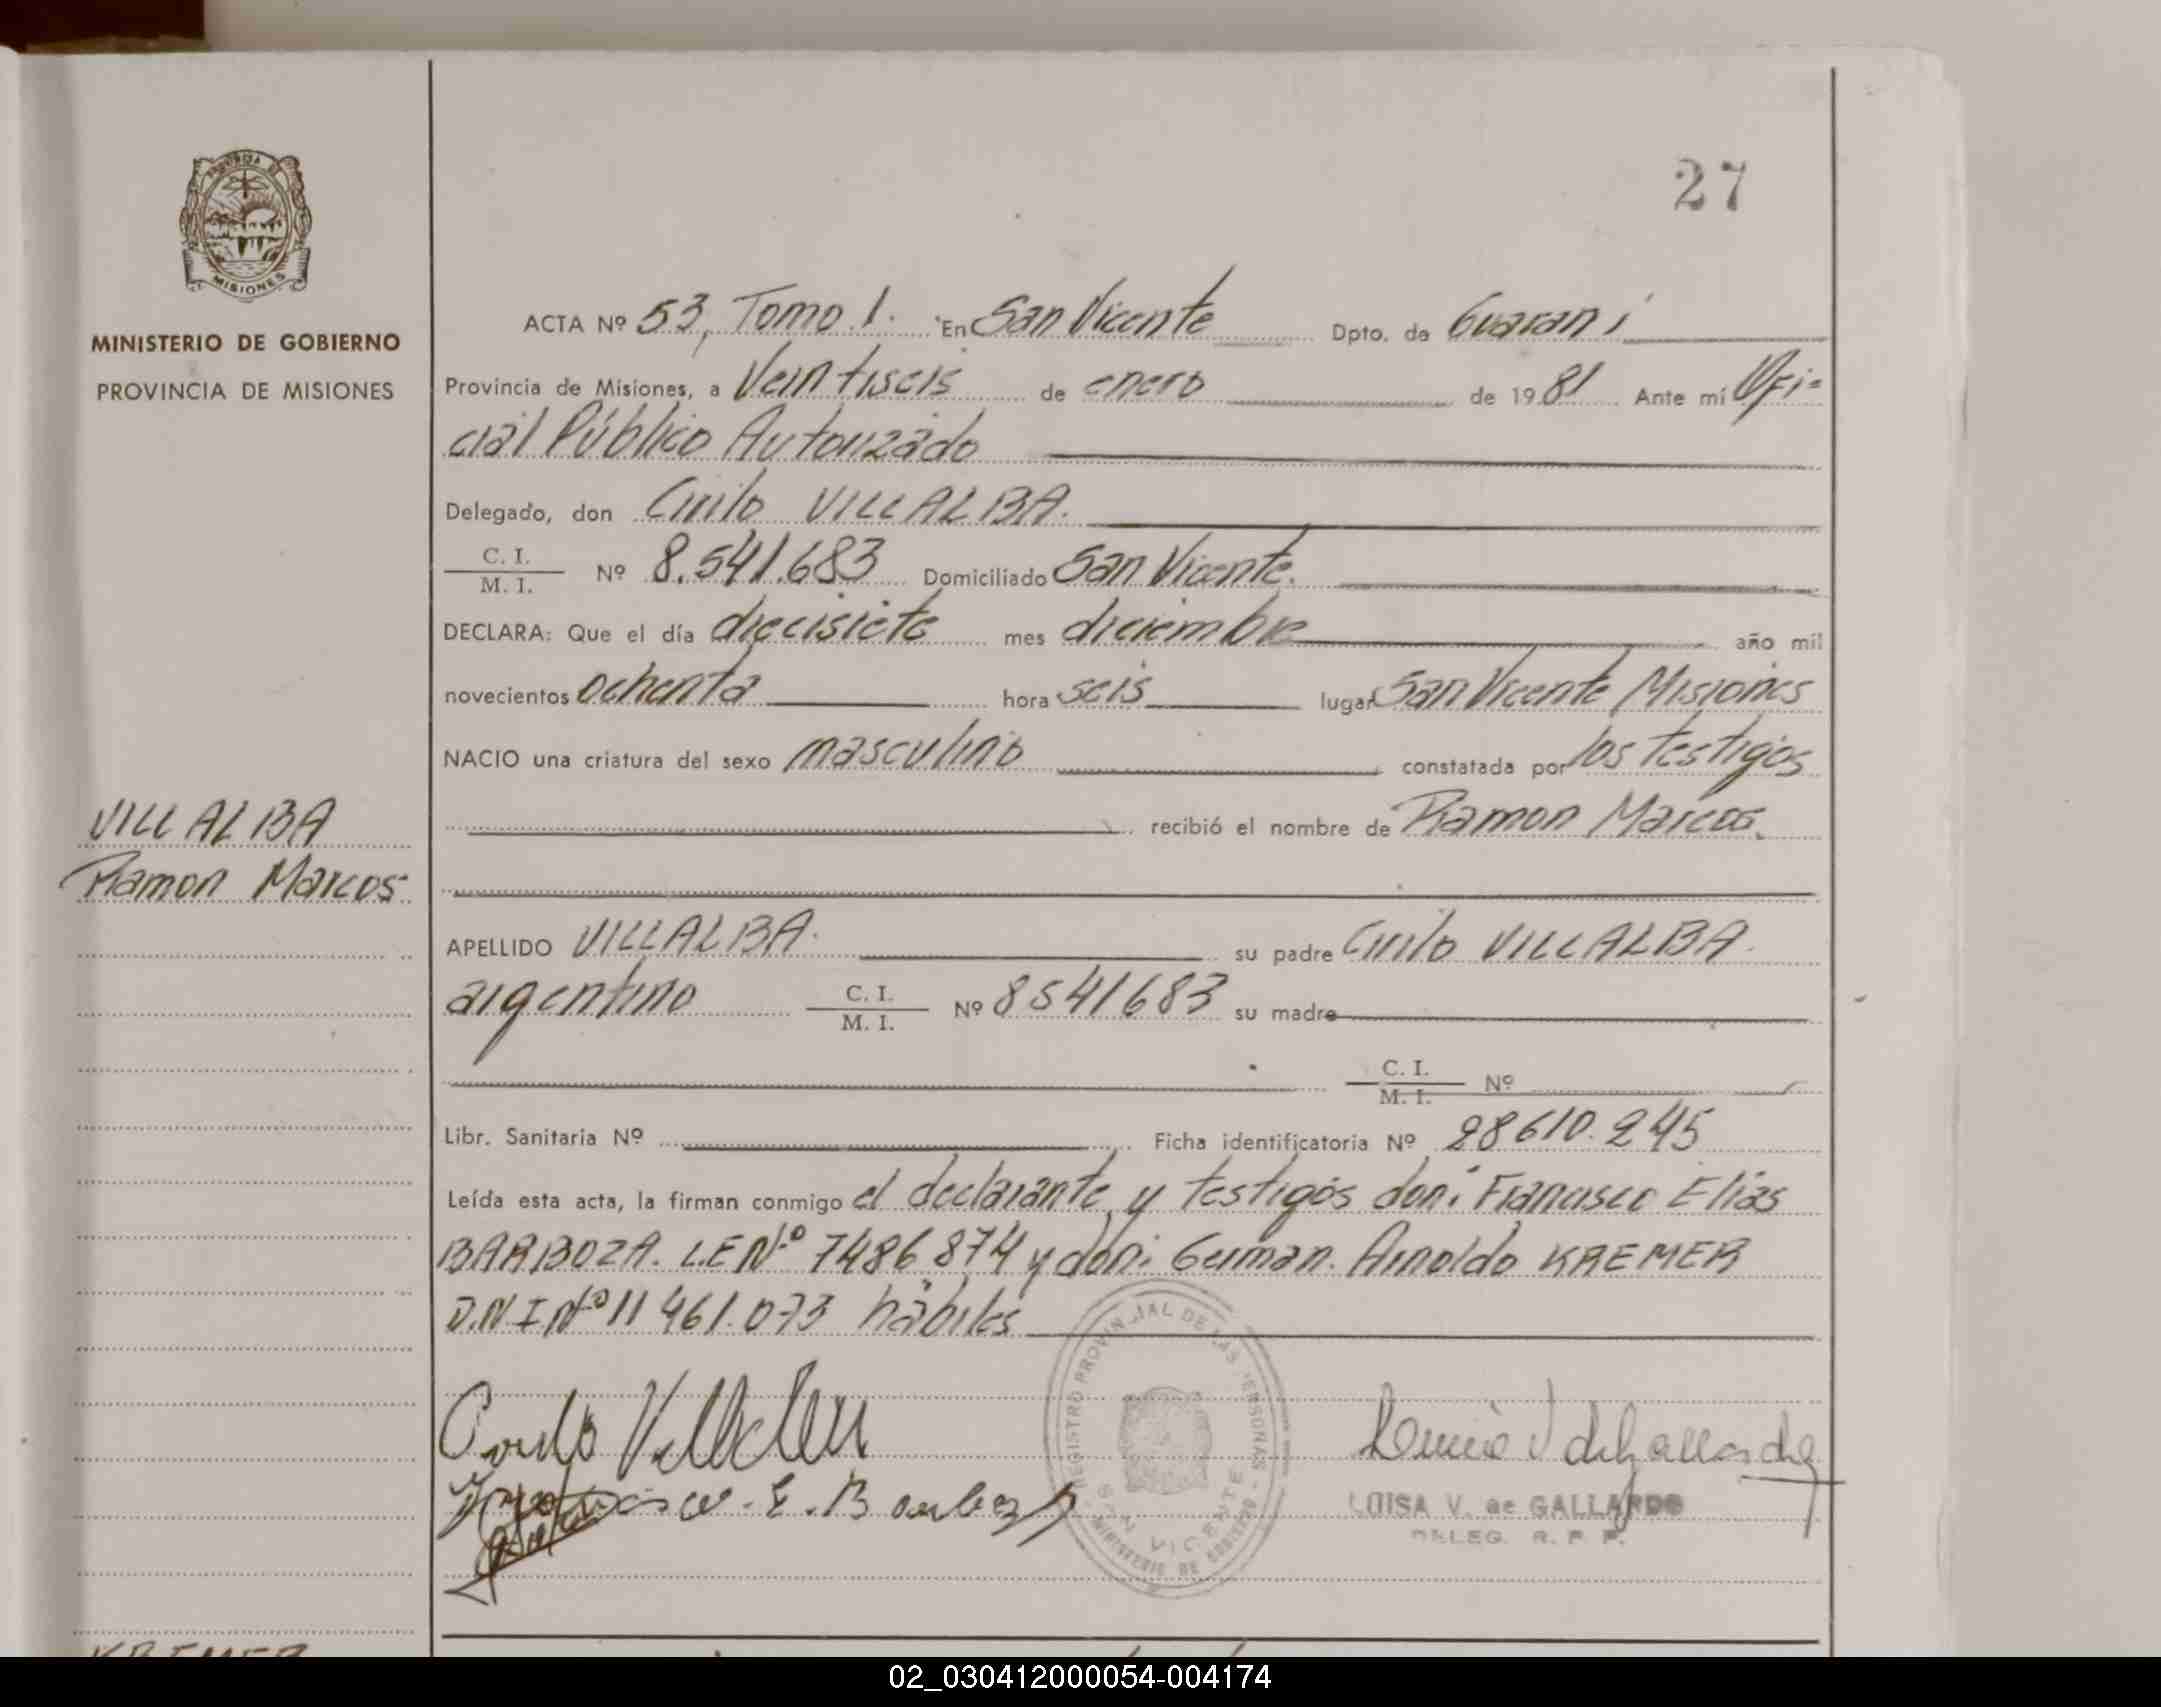 27
PROVINCIA DE
MISIONES
MINISTERIO DE GOBIERNO
PROVINCIA DE MISIONES
ACTA Nº 53, Tomo 1. En San Vicente Dpto. de Guaraní
Provincia de Misiones, a Veintiseis de enero de 1981 Ante mí Ofi=
cial Público Autorizado
Delegado, don Cirilo VILLALBA.
C. I.
M. I. Nº 8.541.683 Domiciliado San Vicente.
DECLARA: Que el día diecisiete mes diciembre año mil
novecientos ochenta hora seis lugar San Vicente Misiones
NACIO una criatura del sexo masculino constatada por los testigos
recibió el nombre de Ramon Marcos.
VILLALBA
Ramon Marcos
APELLIDO VILLALBA. su padre Cirilo VILLALBA.
argentino C. I.
M. I. Nº 8541683 su madre
C. I.
M. I. Nº
Libr. Sanitaria Nº Ficha identificatoria Nº 28610.245
Leída esta acta, la firman conmigo el declarante y testigos don: Francisco Elias
BARBOZA. L.E Nº 7486874 y don: German. Arnoldo KREMER
D.N.I Nº 11 461.073 hábiles
REGISTRO PROVINCIAL DE LAS PERSONAS
SAN VICENTE
MINISTERIO DE GOBIERNO
Francisco. E. Barboza
LUISA V. de GALLARDO
DELEG. R. P. P.
KREMER
02_030412000054-004174